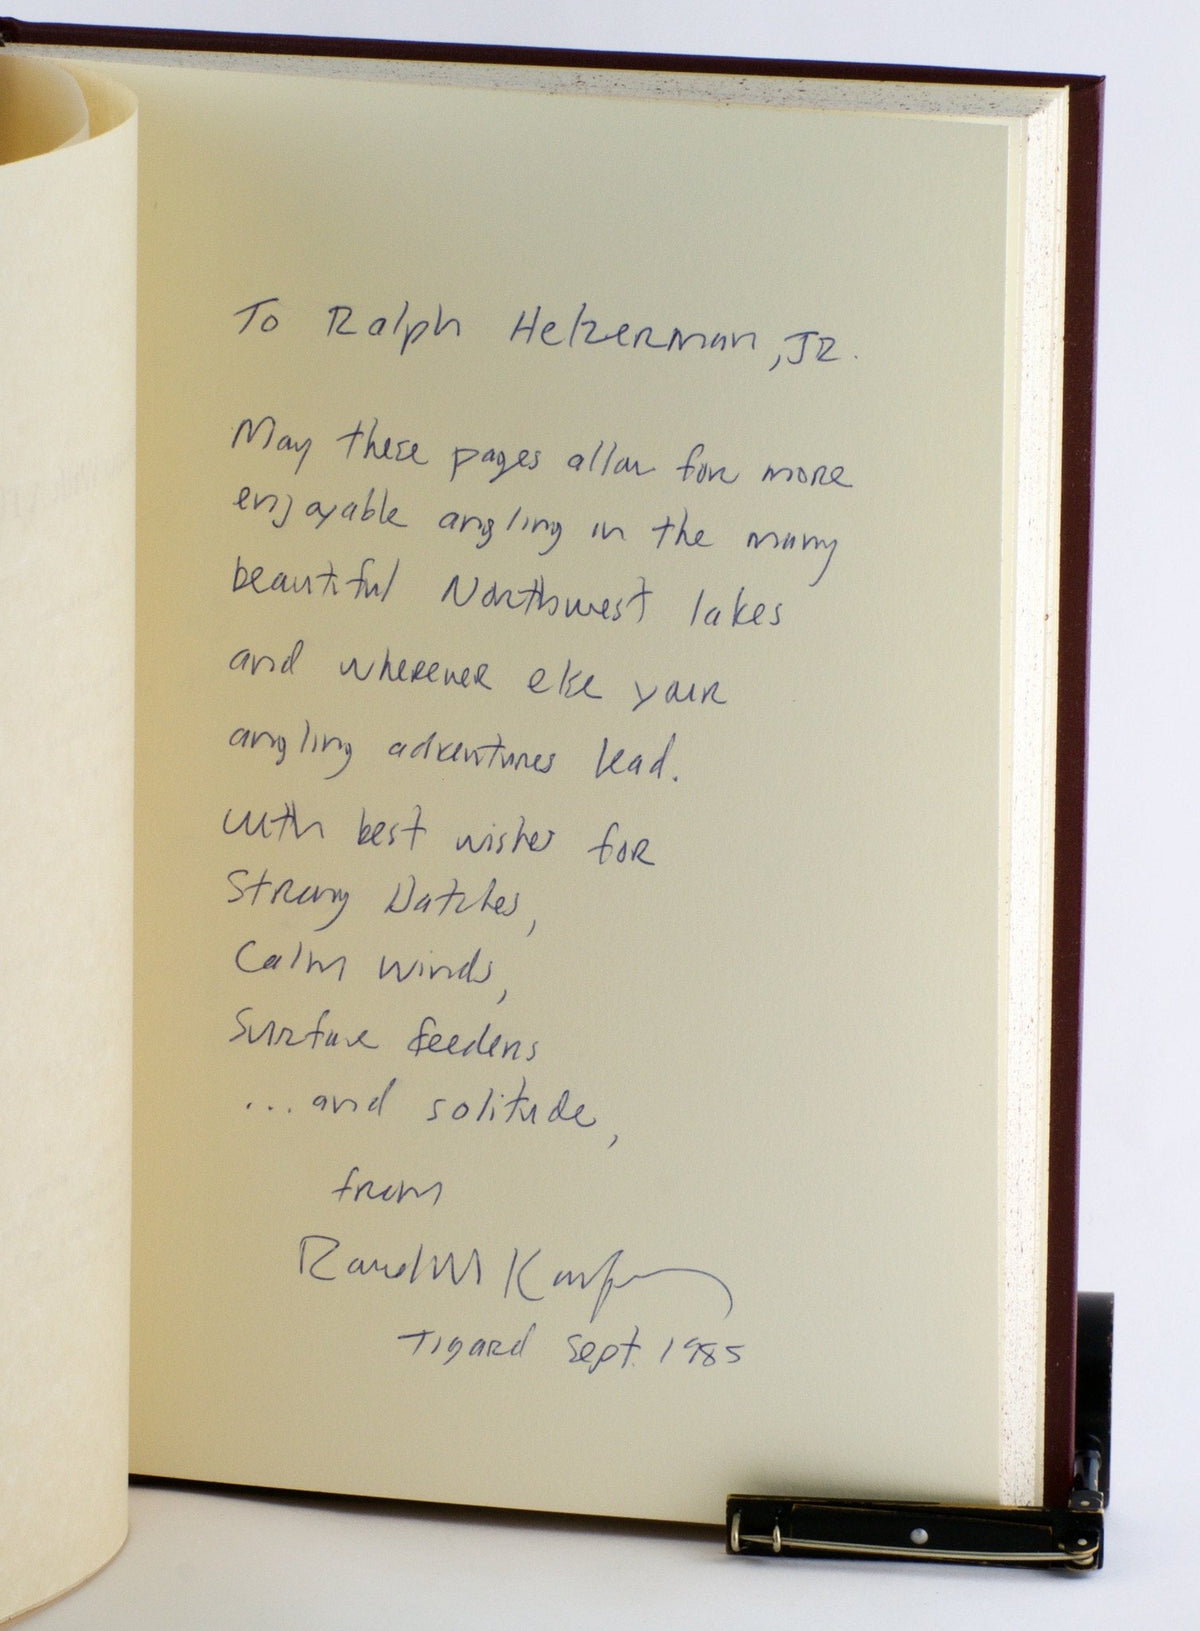 To Ralph Helzerman, JR.
May these pages allow for more
enjoyable angling in the many
beautiful Northwest lakes
and wherever else your
angling adventures lead.
With best wishes for
Strong Hatches,
Calm winds,
Surface feeders
...and solitude,
from
Randall Kaufmann
Tigard Sept. 1985